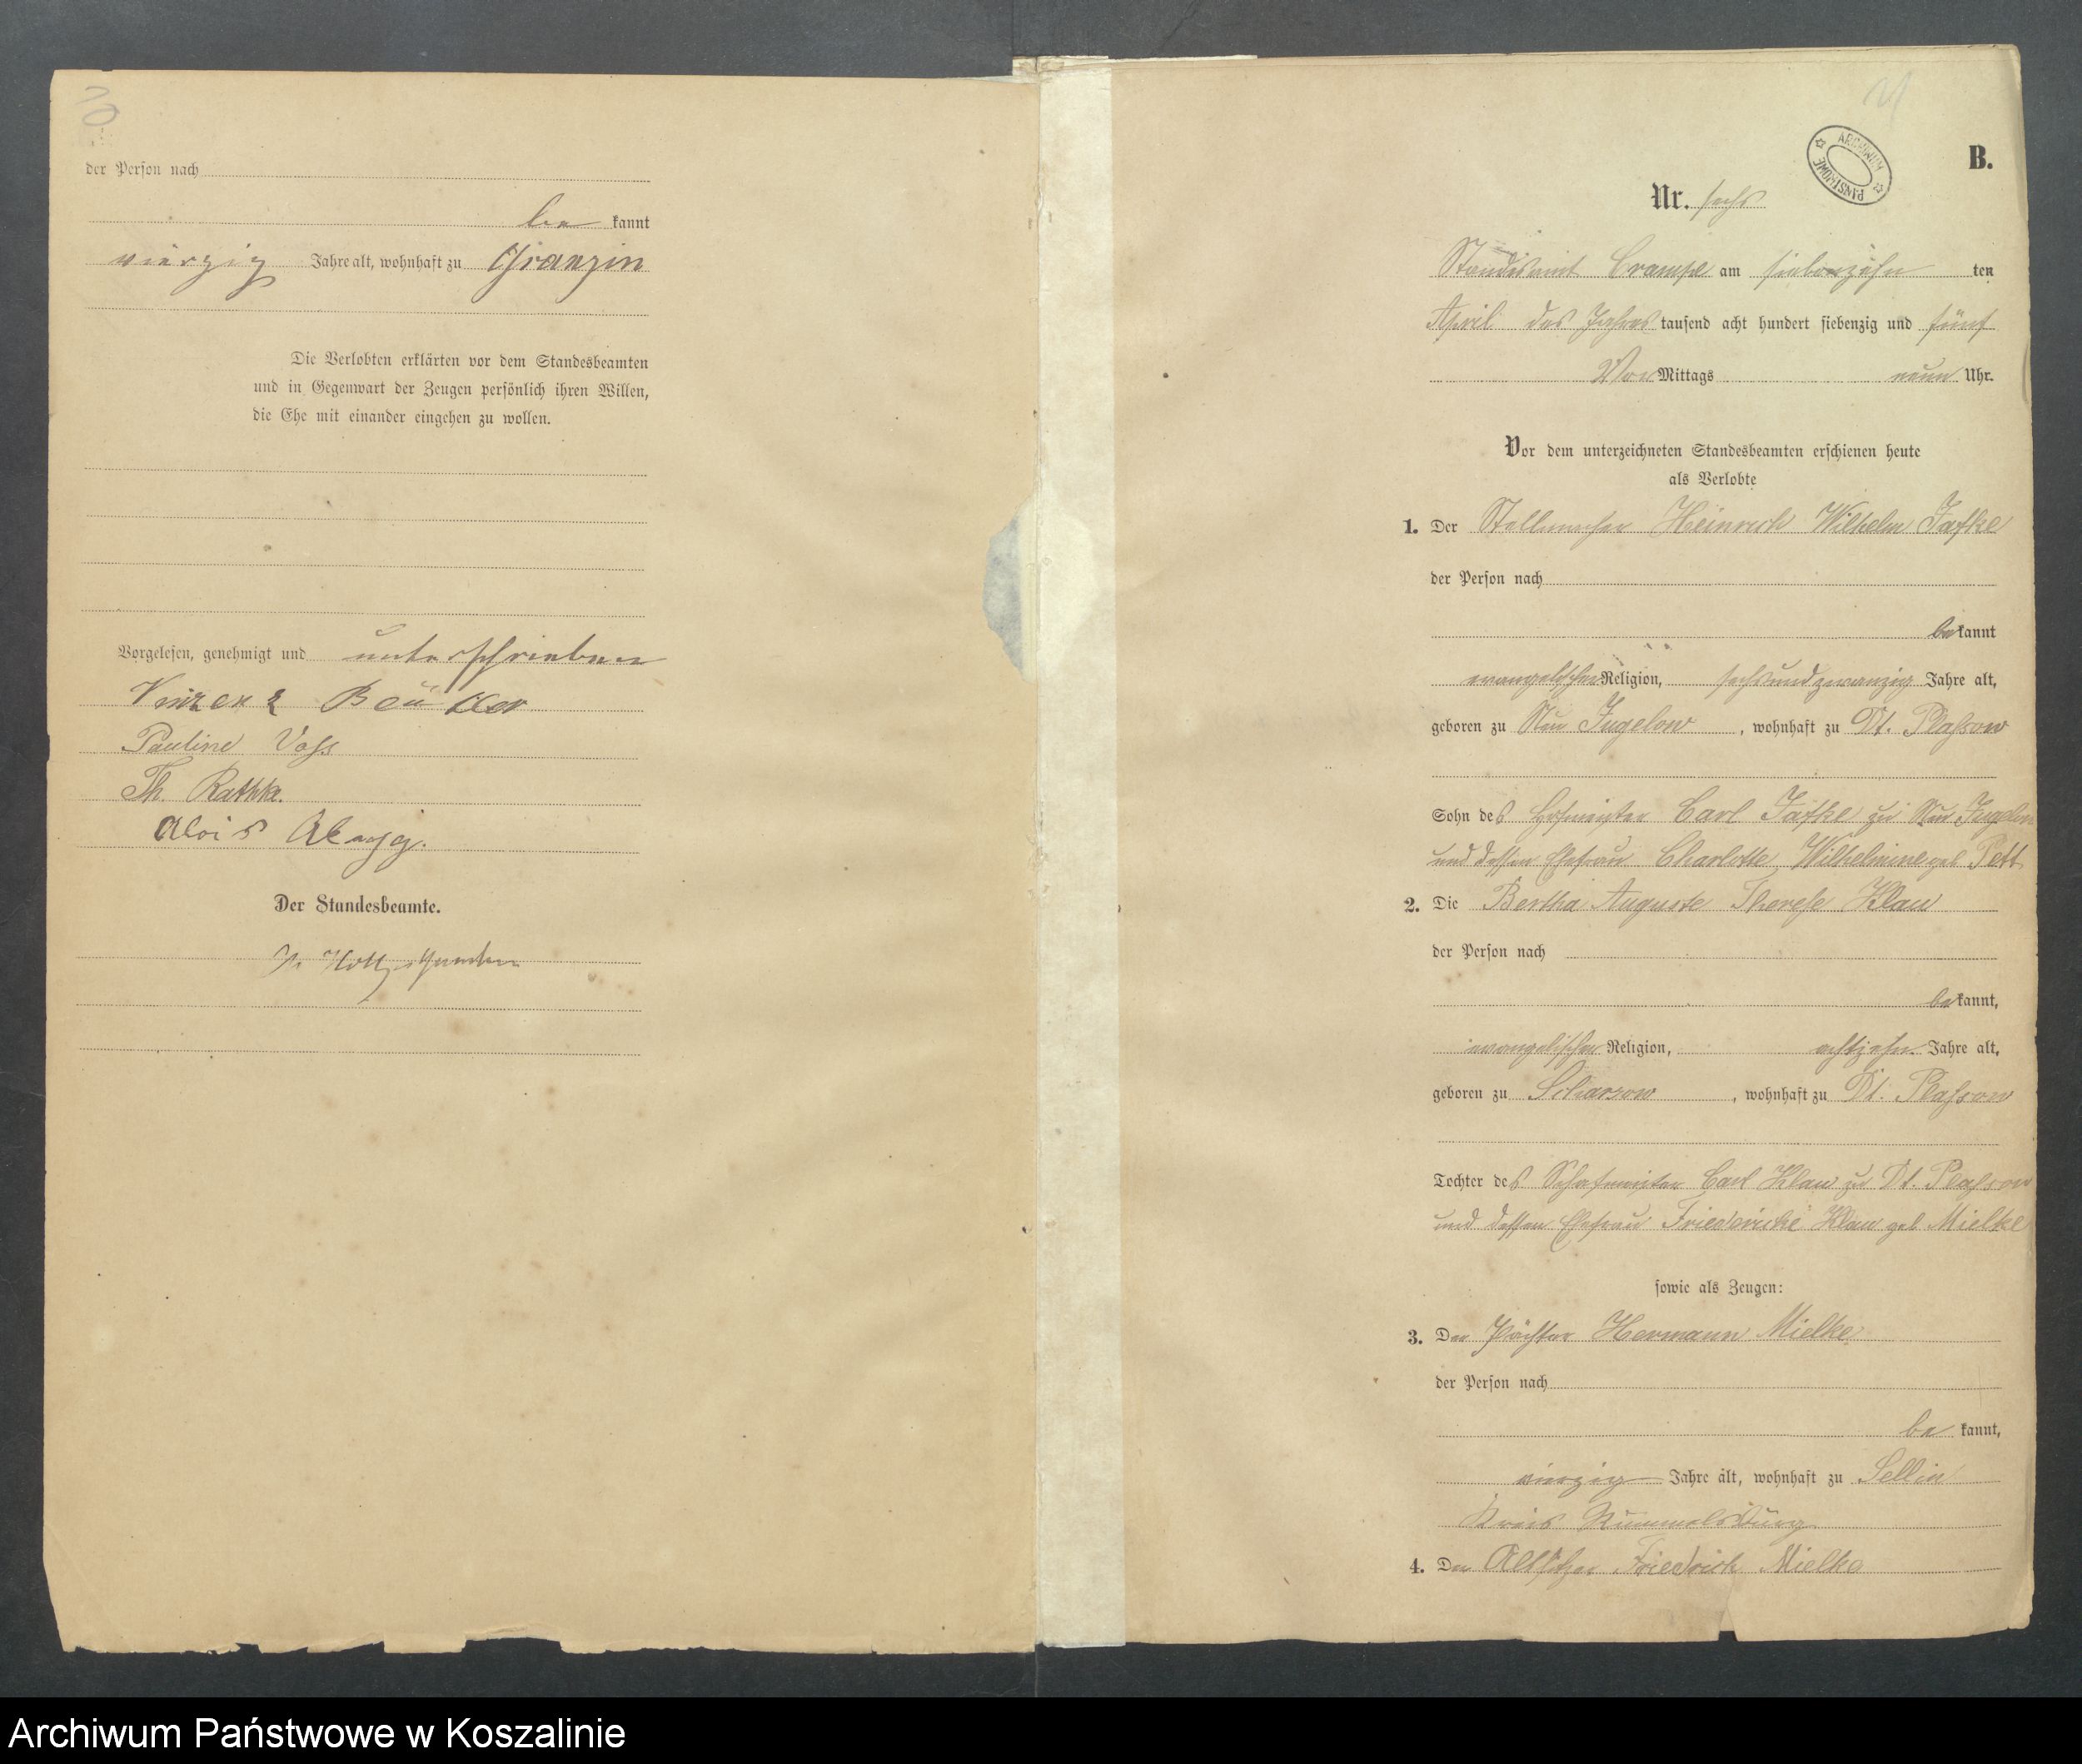 70
der Person nach
be kannt
vierzig Jahre alt, wohnhaft zu Granzin
Die Verlobten erklärten vor dem Standesbeamten
und in Gegenwart der Zeugen persönlich ihren Willen,
die Ehe mit einander eingehen zu wollen.
Vorgelesen, genehmigt und unterschrieben
Vinzenz
Pauline Voss
Th. Rathke.
Alois
Der Standesbeamte.
ARCHIWUM PAŃSTWOWE
B.
Nr. sechs
Standesamt Crampe am siebenzehn ten
April des Jahres tausend acht hundert siebenzig und fünf
Vor Mittags neun Uhr.
Vor dem unterzeichneten Standesbeamten erschienen heute
als Verlobte
1. Der Stellmacher Heinrich Wilhelm Jafke
der Person nach
be kannt
evangelischer Religion, sechsundzwanzig Jahre alt,
geboren zu Neu Jugelow, wohnhaft zu Dt. Plassow
Sohn des Hofmeister Carl Jafke zu Neu Jugelow
und dessen Ehefrau Charlotte Wilhelmine geb Pett
2. Die Bertha Auguste Therese Klau
der Person nach
be kannt,
evangelischer Religion, achtzehn Jahre alt,
geboren zu Scharsow, wohnhaft zu Dt. Plassow
Tochter des Schafmeister Carl Klau zu Dt. Plassow
und dessen Ehefrau Friedericke Klau geb Mielke
sowie als Zeugen:
3. Der Pächter Hermann Mielke
der Person nach
be kannt,
vierzig Jahre alt, wohnhaft zu Sellin
Kreis Rummelsburg
4. Der Altsitzer Friedrich Mielke
Archiwum Państwowe w Koszalinie